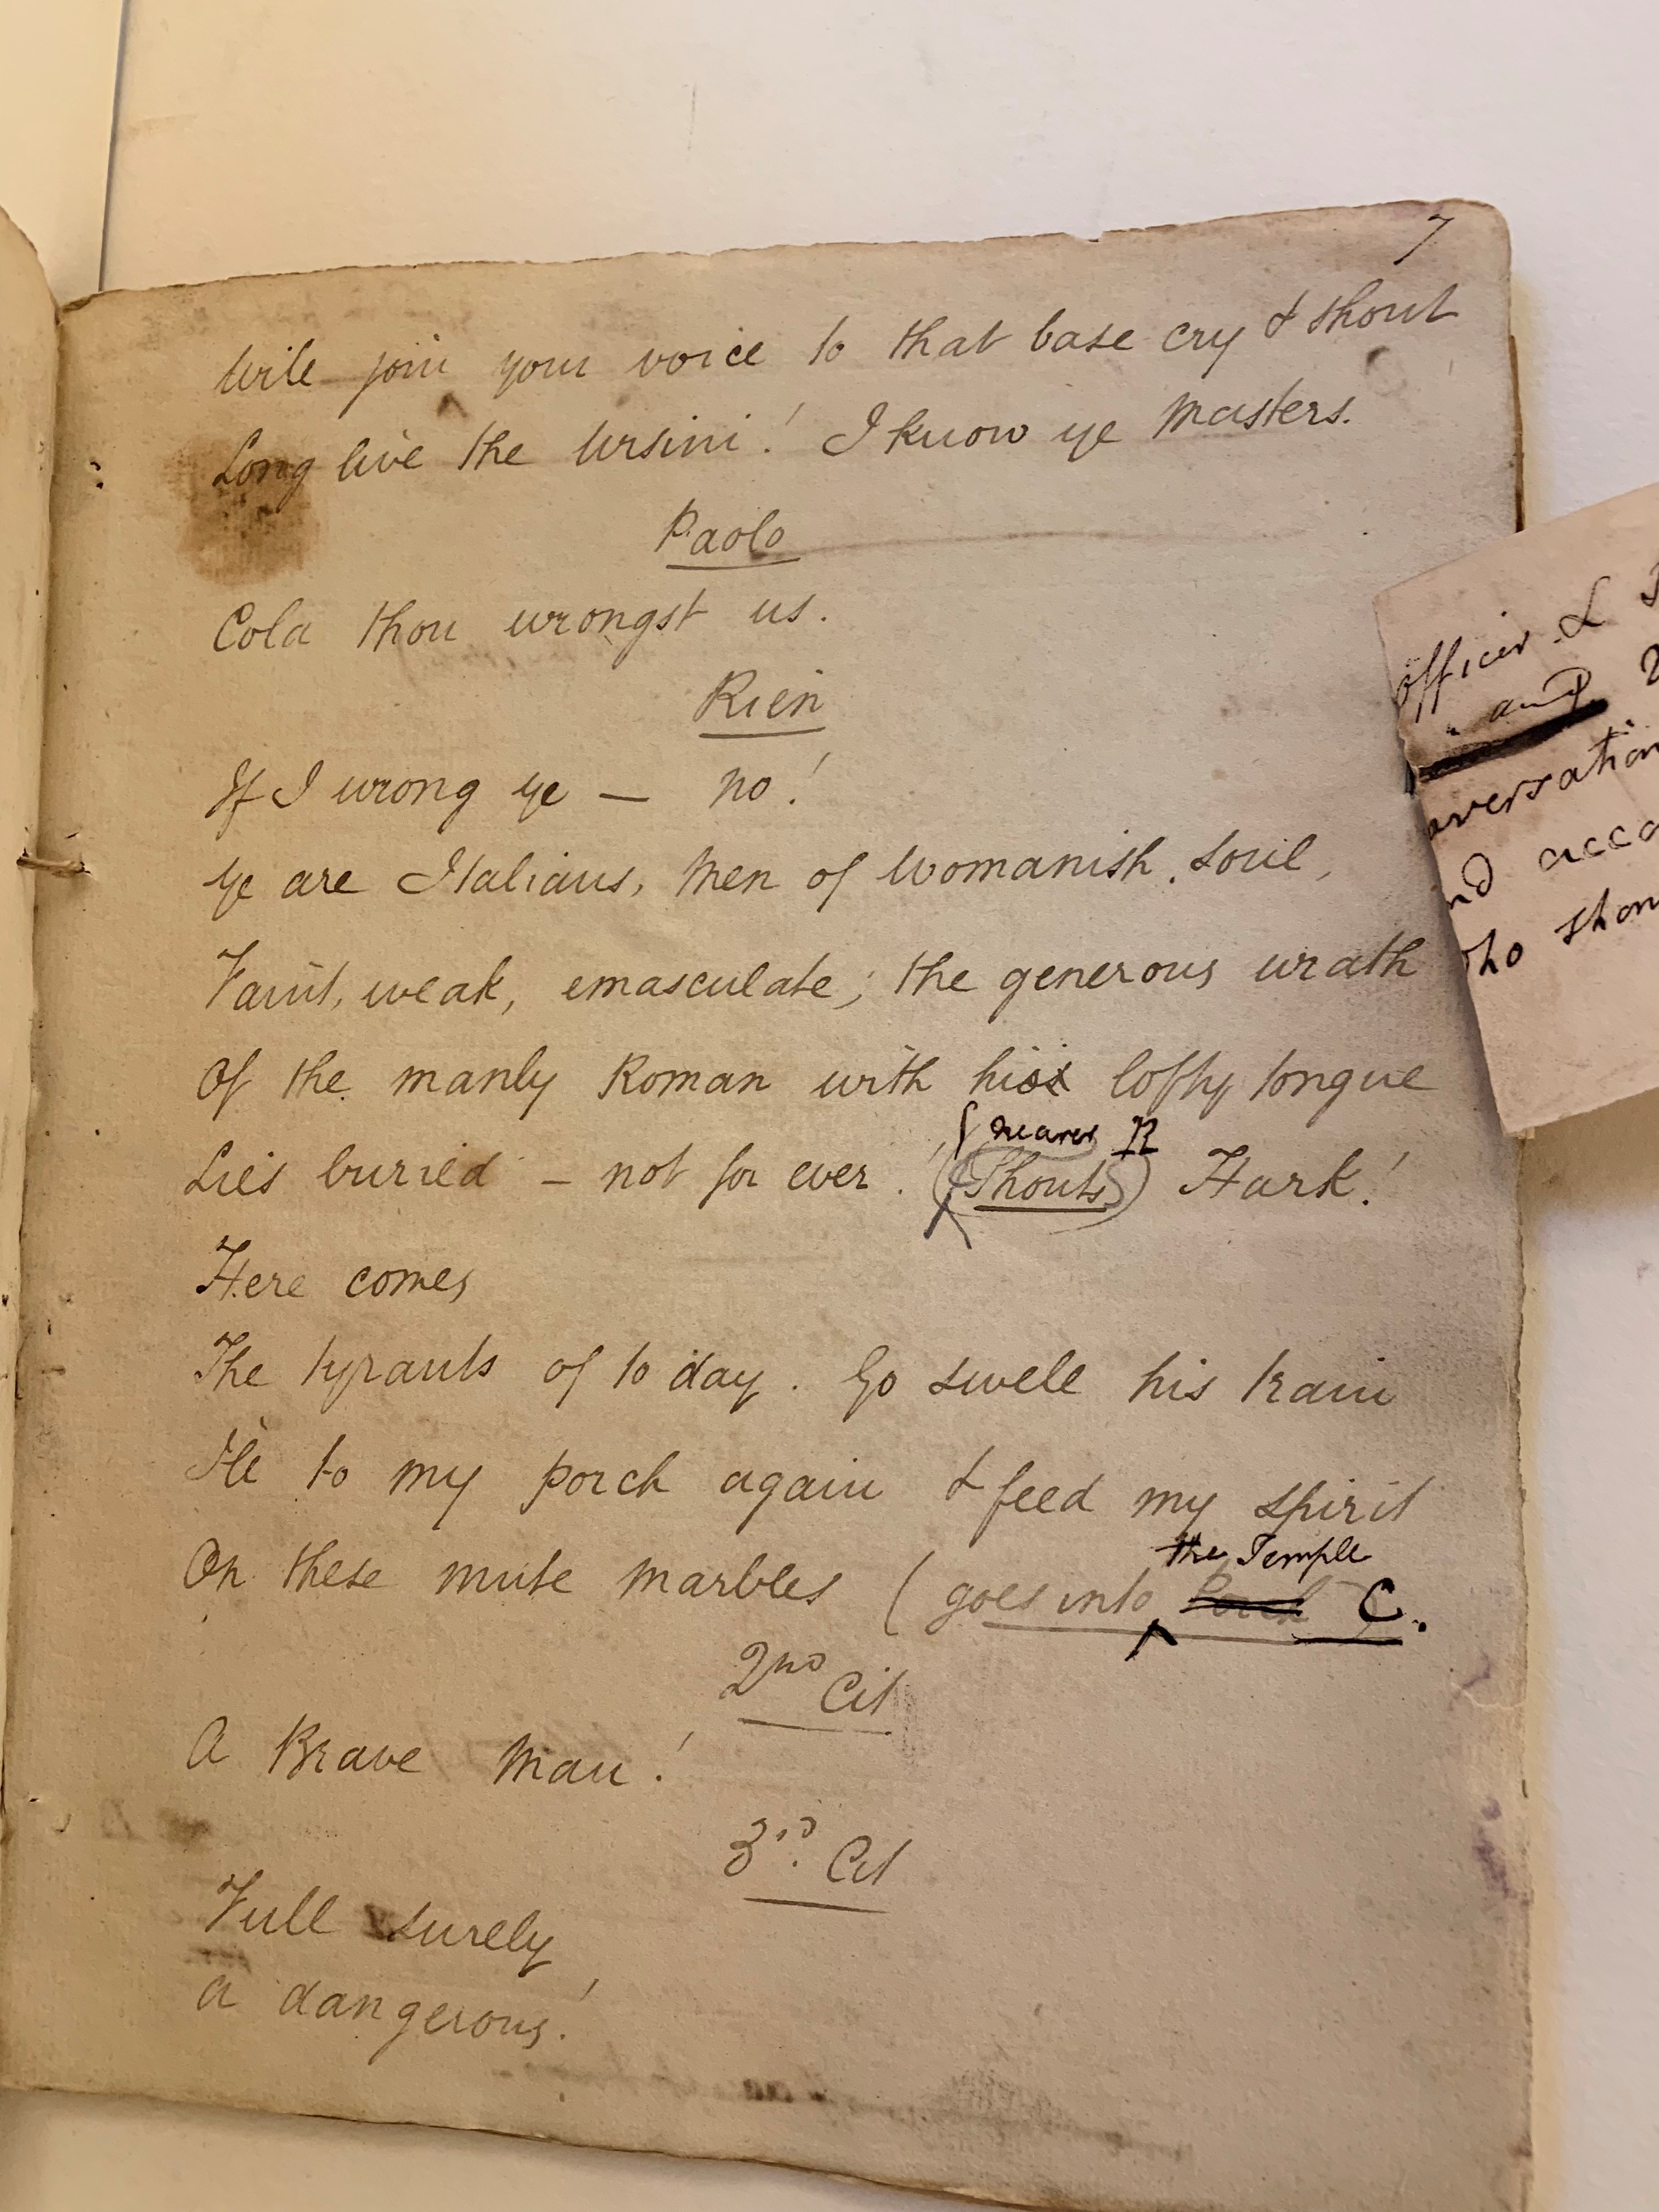 7
Will join your voice to that base cry & shout
Long live the Ursini! I know ye Masters.
Paolo
Cola thou wrongst us.
Rien
If I wrong ye — no!
Ye are Italians, Men of Womanish soul,
Faint, weak, emasculate; the generous wrath
Of the manly Roman with his lofty tongue
nearer R
Lies buried - not for ever! (Shouts) Hark!
Here comes
The tyrants of to day. Go swell his train
I'le to my porch again & feed my spirit
the Temple
On these mute marbles (goes into Porch C.
2nd Cit
A Brave Man!
3rd. Cit
Full surely
a dangerous!
Officer. L
and
nd
ho